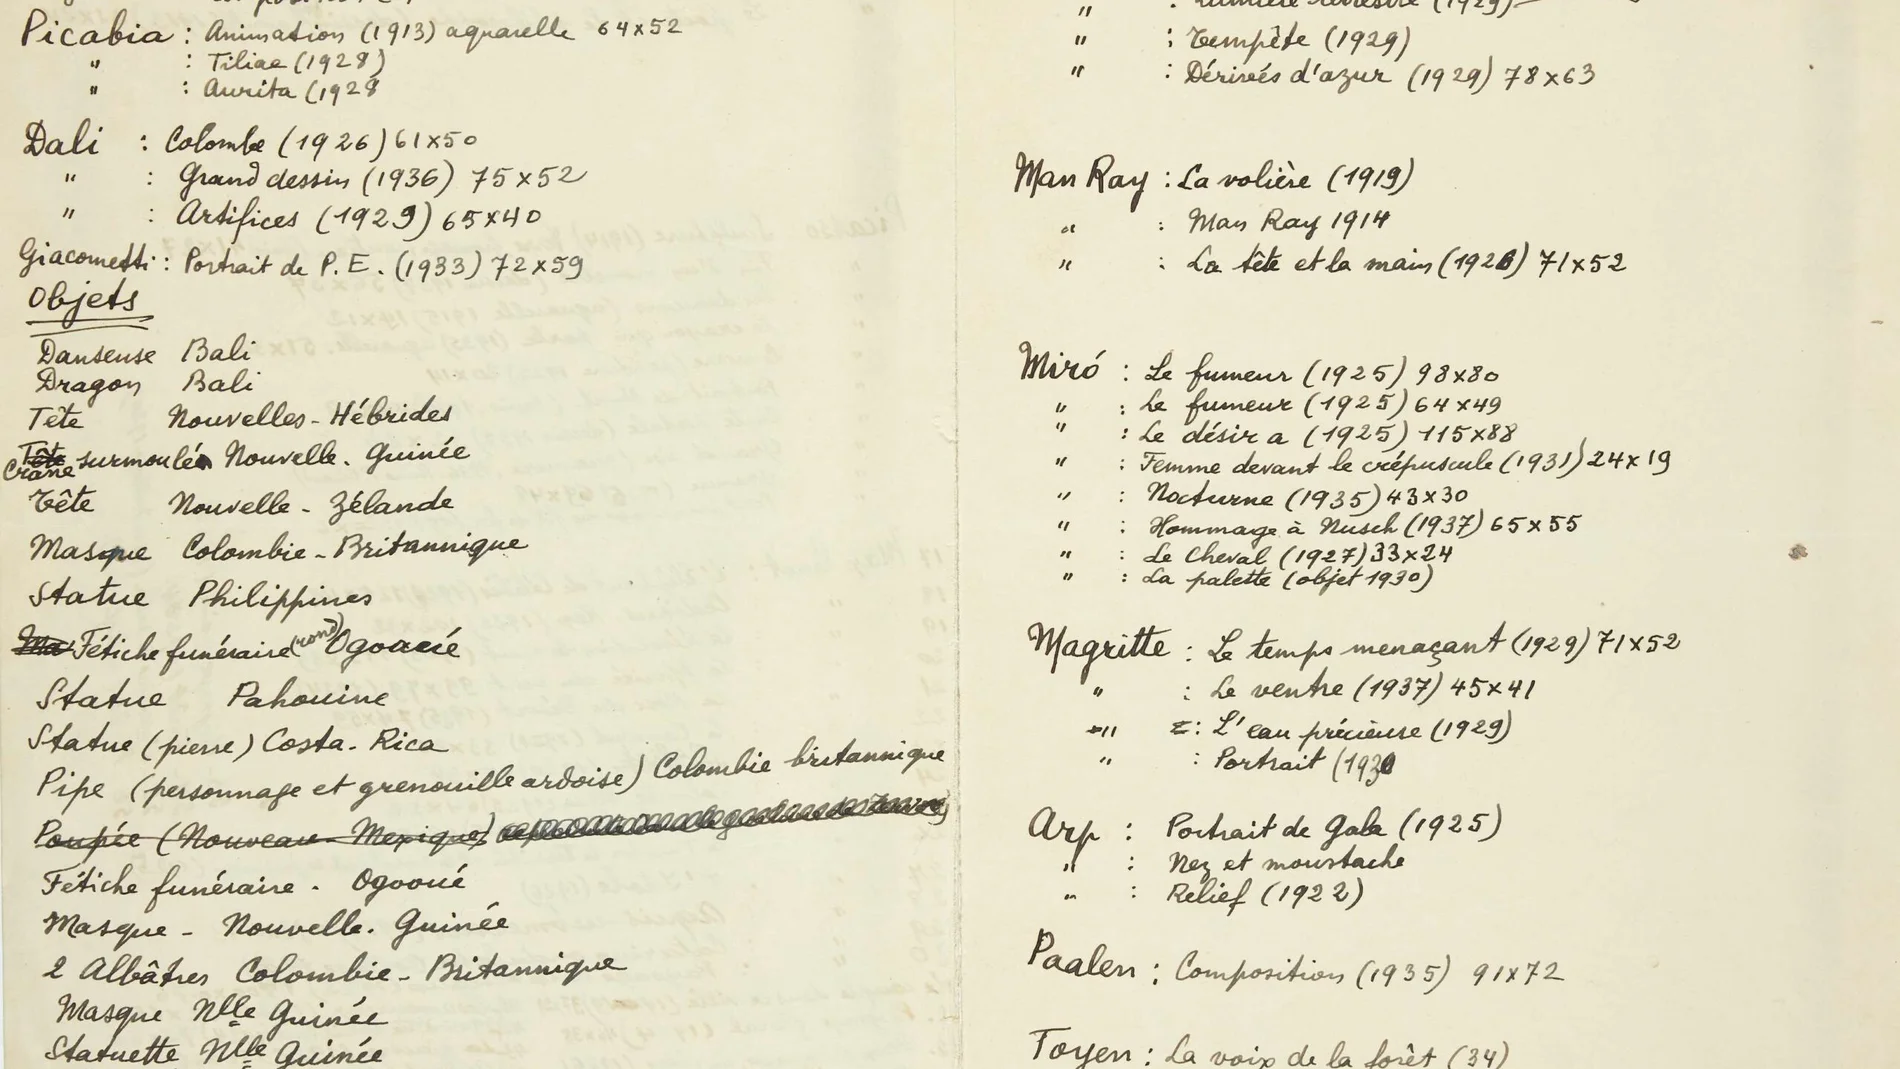 Picabia : Animation (1913) aquarelle 64x52
" : Tiliae (1928)
" : Aurita (1928
Dali : Colombe (1926) 61x50
" : Grand dessin (1936) 75x52
" : Artifices (1929) 65x40
Giacometti : Portrait de P. E. (1933) 72x59
Objets
Danseuse Bali
Dragon Bali
Tête Nouvelles-Hébrides
Tête
Crâne surmoulé Nouvelle-Guinée
Tête Nouvelle-Zélande
Masque Colombie-Britannique
Statue Philippines
Ma Fétiche funéraire (rond) Ogooué
Statue Pahouine
Statue (pierre) Costa-Rica
Pipe (personnage et grenouille ardoise) Colombie britannique
Poupée (Nouveau-Mexique)
Fétiche funéraire - Ogooué
Masque - Nouvelle-Guinée
2 Albâtres Colombie-Britannique
Masque Nlle Guinée
Statuette Nlle Guinée
" : (1929)
" : Tempête (1929)
" : Dérivés d'azur (1929) 78x63
Man Ray : La volière (1919)
" : Man Ray 1914
" : La tête et la main (1926) 71x52
Miró : Le fumeur (1925) 98x80
" : Le fumeur (1925) 64x49
" : Le désir a (1925) 115x88
" : Femme devant le crépuscule (1931) 24x19
" : Nocturne (1935) 43x30
" : Hommage à Nusch (1937) 65x55
" : Le Cheval (1927) 33x24
" : La palette (objet 1930)
Magritte : Le temps menaçant (1929) 71x52
" : Le ventre (1937) 45x41
" : L'eau précieuse (1929)
" : Portrait (1930
Arp : Portrait de Gala (1925)
" : Nez et moustache
" : Relief (1922)
Paalen : Composition (1935) 91x72
Toyen : La voix de la forêt (34)